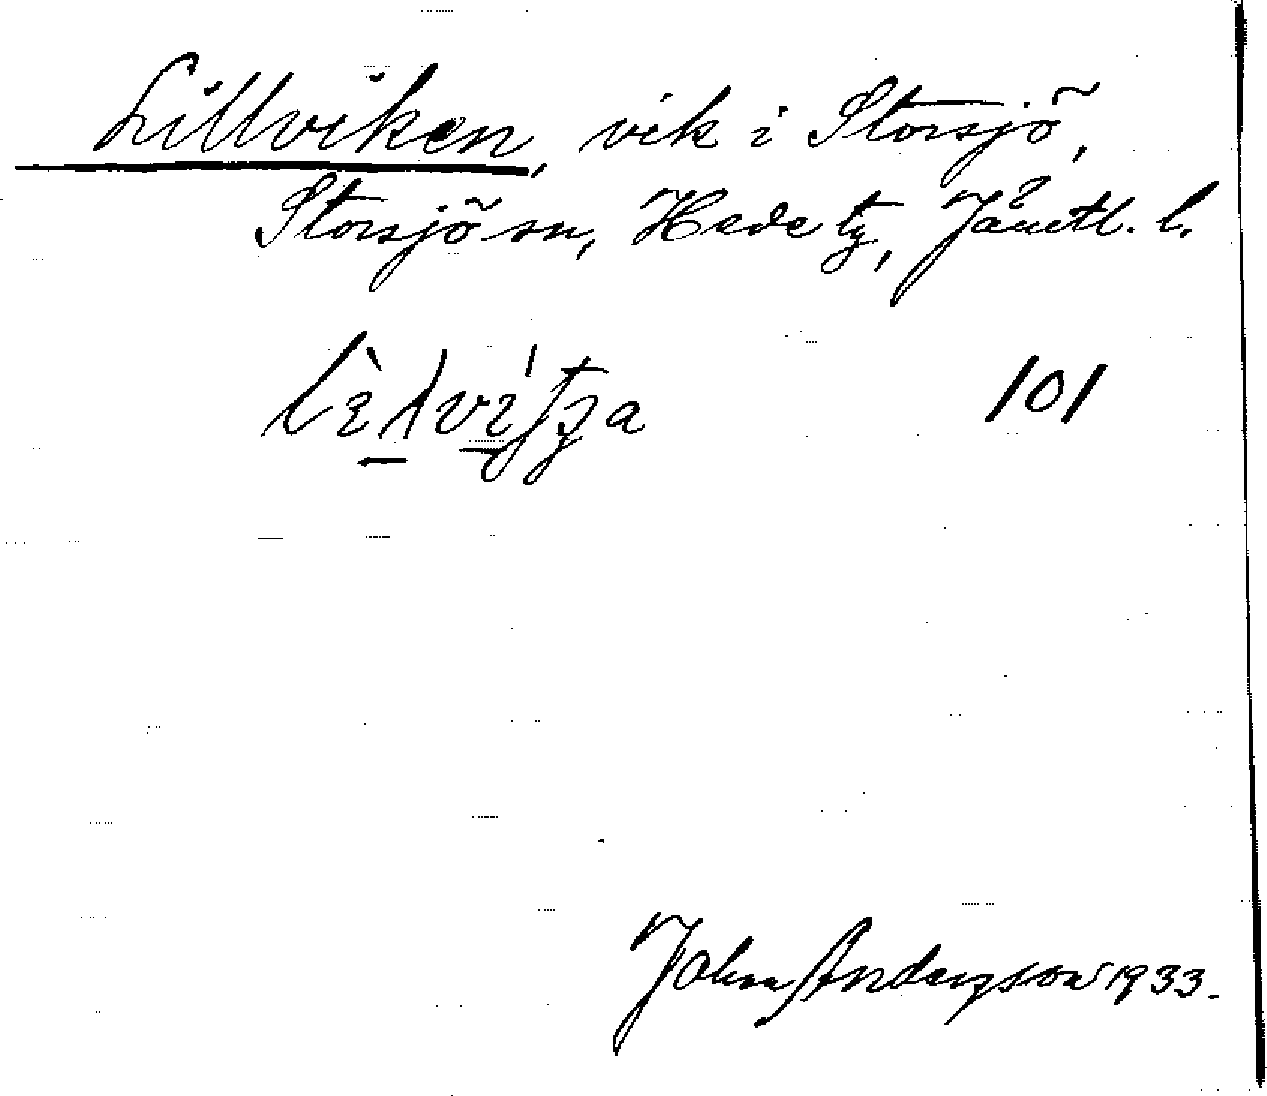 Lillviken, vik i Storsjö,
Storsjö sn, Hede tg, Jämtl. l.
101
John Anderzson 1933.